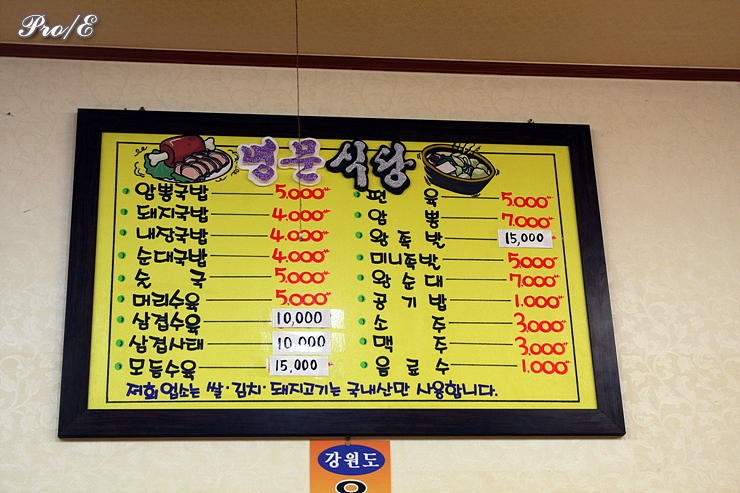 Pro/E
명문식당
암뽕국밥 5.000
돼지국밥 4.000
내장국밥 4.000
순대국밥 4.000
술국 5.000
머리수육 5.000
삼겹수육 10,000
삼겹사태 10,000
모듬수육 15,000
편육 5.000
암뽕 7.000
왕족발 15,000
미니족발 5.000
왕순대 7.000
공기밥 1.000
소주 3.000
맥주 3.000
음료수 1.000
저희 업소는 쌀·김치·돼지고기는 국내산만 사용합니다.
강원도